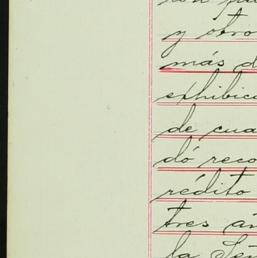 y otro
más d
exhibic
de cua
dó reco
rédito
tres añ
la Señ